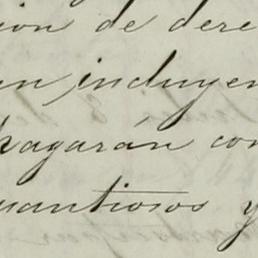 ion de dere
n, incluyen
pagarán con
uantiosos y